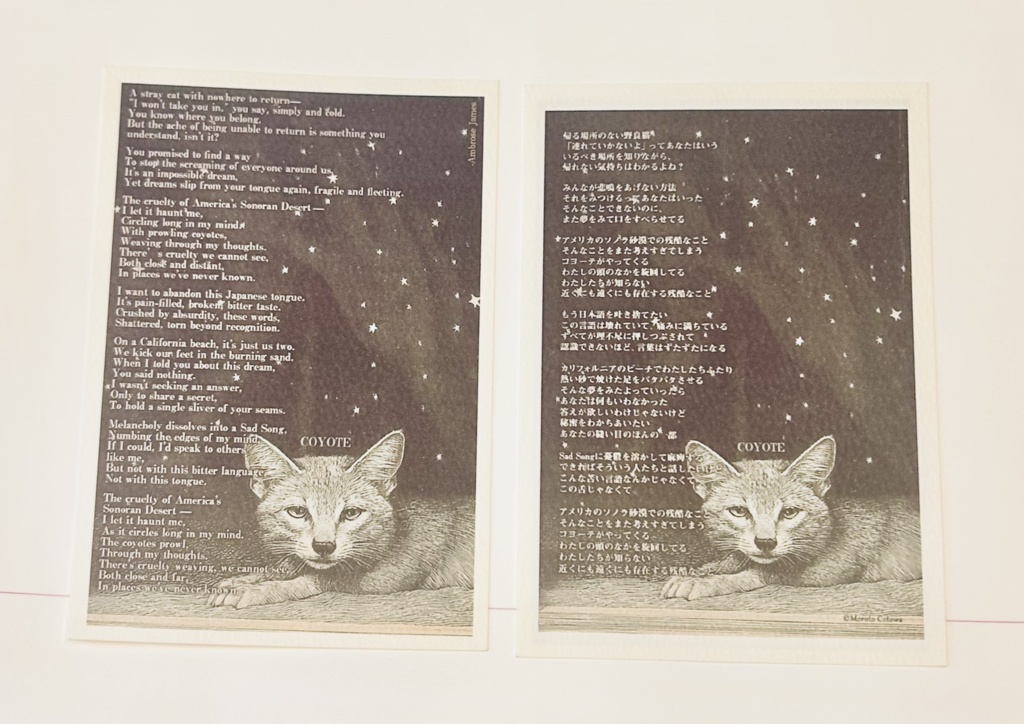 A stray cat with nowhere to return—
"I won't take you in," you say, simply and cold.
You know where you belong.
But the ache of being unable to return is something you
understand, isn't it?
You promised to find a way
To stop the screaming of everyone around us,
It's an impossible dream,
Yet dreams slip from your tongue again, fragile and fleeting.
The cruelty of America's Sonoran Desert—
I let it haunt me,
Circling long in my mind,
With prowling coyotes,
Weaving through my thoughts.
There's cruelty we cannot see,
Both close and distant,
In places we've never known.
I want to abandon this Japanese tongue.
It's pain-filled, broken, bitter taste.
Crushed by absurdity, these words,
Shattered, torn beyond recognition.
On a California beach, it's just us two.
We kick our feet in the burning sand.
When I told you about this dream,
You said nothing.
I wasn't seeking an answer,
Only to share a secret,
To hold a single sliver of your seams.
Melancholy dissolves into a Sad Song,
Numbing the edges of my mind.
If I could, I'd speak to others
like me,
But not with this bitter language,
Not with this tongue.
The cruelty of America's
Sonoran Desert —
I let it haunt me,
As it circles long in my mind.
The coyotes prowl,
Through my thoughts.
There's cruelty weaving, we cannot see,
Both close and far,
In places we've never known.
COYOTE
-Ambrose James
帰る場所のない野良猫
「連れていかないよ」ってあなたはいう
いるべき場所を知りながら、
帰れない気持ちはわかるよね?
みんなが悲鳴をあげない方法
それをみつけるってあなたはいった
そんなことできないのに、
また夢をみて口をすべらせてる
アメリカのソノラ砂漠での残酷なこと
そんなことをまた考えすぎてしまう
コヨーテがやってくる
わたしの頭のなかを旋回してる
わたしたちが知らない
近くにも遠くにも存在する残酷なこと
もう日本語を吐き捨てたい
この言語は壊れていて、痛みに満ちている
すべてが理不尽に押しつぶされて
認識できないほど、言葉はずたずたになる
カリフォルニアのビーチでわたしたちふたり
熱い砂で焼けた足をバタバタさせる
そんな夢をみたよっていったら
あなたは何もいわなかった
答えが欲しいわけじゃないけど
秘密をわかちあいたい
あなたの縫い目のほんの一部
Sad Songに憂鬱を溶かして麻痺する
できればそういう人たちと話したいけど
こんな苦い言語なんかじゃなくて
この舌じゃなくて
アメリカのソノラ砂漠での残酷なこと
そんなことをまた考えすぎてしまう
コヨーテがやってくる
わたしの頭のなかを旋回してる
わたしたちが知らない
近くにも遠くにも存在する残酷なこと
COYOTE